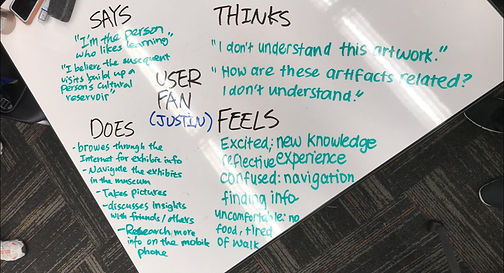 SAYS
"I'm the person
who likes learning"
"I believe the susequent
visits build up a
person's cultural
reservoir"
THINKS
"I don't understand this artwork."
"How are these artifacts related?
I don't understand."
USER
FAN
(JUSTIN)
DOES
- browes through the
Internet for exhibit info
- Navigate the exhibits
in the museum
- Takes pictures
- discusses insights
with friends / others
- Research more
info on the mobile
phone
FEELS
Excited; new knowledge
reflective experience
confused: navigation
finding info
uncomfortable: no
food, tired
of walk